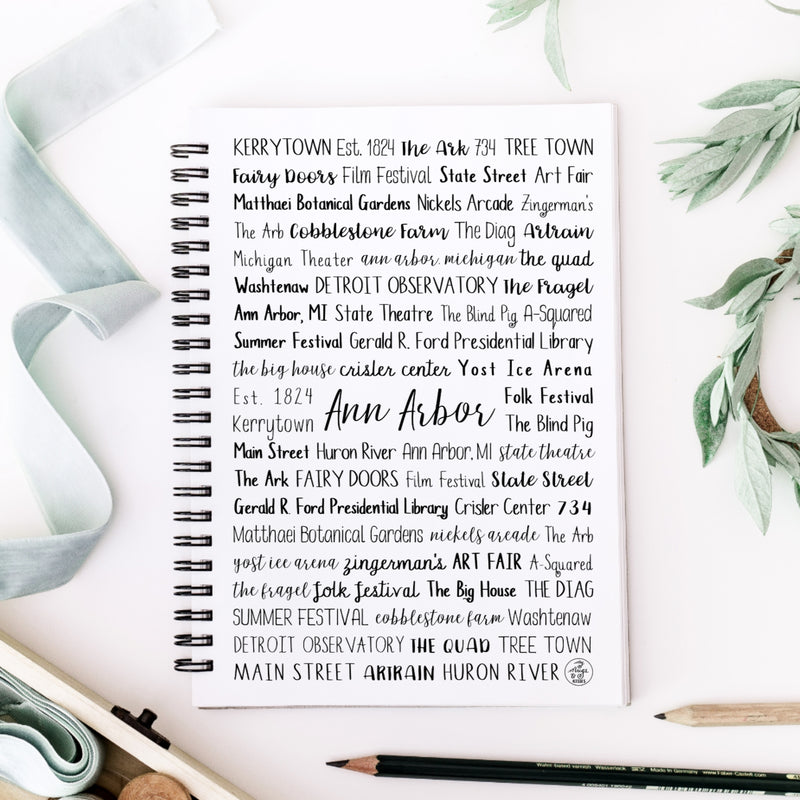 KERRYTOWN Est. 1824 The Ark 734 TREE TOWN
Fairy Doors Film Festival State Street Art Fair
Matthaei Botanical Gardens Nickels Arcade Zingerman's
The Arb Cobblestone Farm The Diag Artrain
Michigan Theater ann arbor. michigan the quad
Washtenaw DETROIT OBSERVATORY The Fragel
Ann Arbor, MI State Theatre The Blind Pig A-Squared
Summer Festival Gerald R. Ford Presidential Library
the big house crisler center Yost Ice Arena
Est. 1824 Folk Festival
Ann Arbor
Kerrytown The Blind Pig
Main Street Huron River Ann Arbor, MI state theatre
The Ark FAIRY DOORS Film Festival State Street
Gerald R. Ford Presidential Library Crisler Center 734
Matthaei Botanical Gardens nickels arcade The Arb
yost ice arena zingerman's ART FAIR A-Squared
the fragel folk festival The Big House THE DIAG
SUMMER FESTIVAL cobblestone farm Washtenaw
DETROIT OBSERVATORY THE QUAD TREE TOWN
MAIN STREET ARTRAIN HURON RIVER
Made in Germany www.Faber-Castell.com